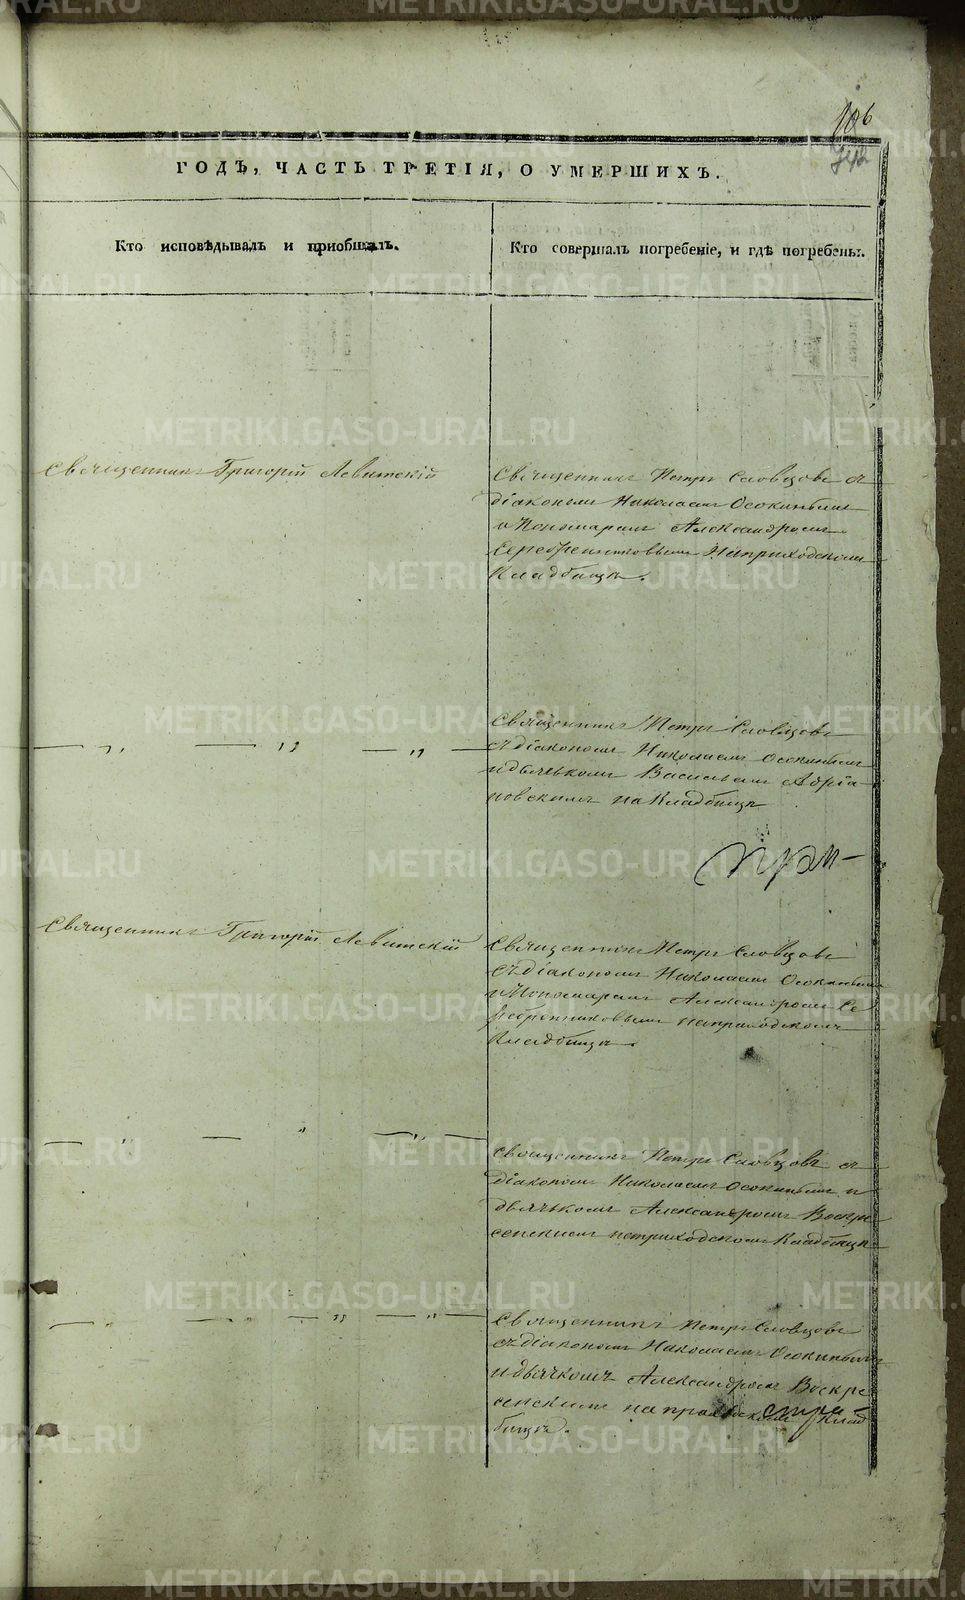 106
742
ГОДЪ, ЧАСТЬ ТРЕТІЯ, О УМЕРШИХЪ.
Кто исповѣдывалъ и приобщалъ.
Кто совершалъ погребеніе, и гдѣ погребены.
Священникъ Григорій Левитскій
Священникъ Петръ Словцовъ съ
діакономъ Николаемъ Осокинымъ
и Пономаремъ Александромъ
Серебренниковымъ На приходскомъ
Кладбищѣ.
— „ — „ — „ —
Священникъ Петръ Словцовъ
съ діакономъ Николаемъ Осокинымъ
и дьячькомъ Василіемъ Адріа
новскимъ на Кладбищѣ
Священникъ Григорій Левитскій
Священникъ Петръ Словцовъ
съ діакономъ Николаемъ Осокинымъ
и Пономаремъ Александромъ Се
ребренниковымъ на приходскомъ
Кладбищѣ.
— „ — „ — „ —
Священникъ Петръ Словцовъ съ
діакономъ Николаемъ Осокинымъ и
дьячькомъ Александромъ Воскре
сенскимъ на приходскомъ Кладбищѣ
— „ — „ — „ —
Священникъ Петръ Словцовъ
съ діакономъ Николаемъ Осокинымъ
и дьячкомъ Александромъ Воскре
сенскимъ на приходскомъ Клад
бищѣ.
METRIKI.GASO-URAL.RU